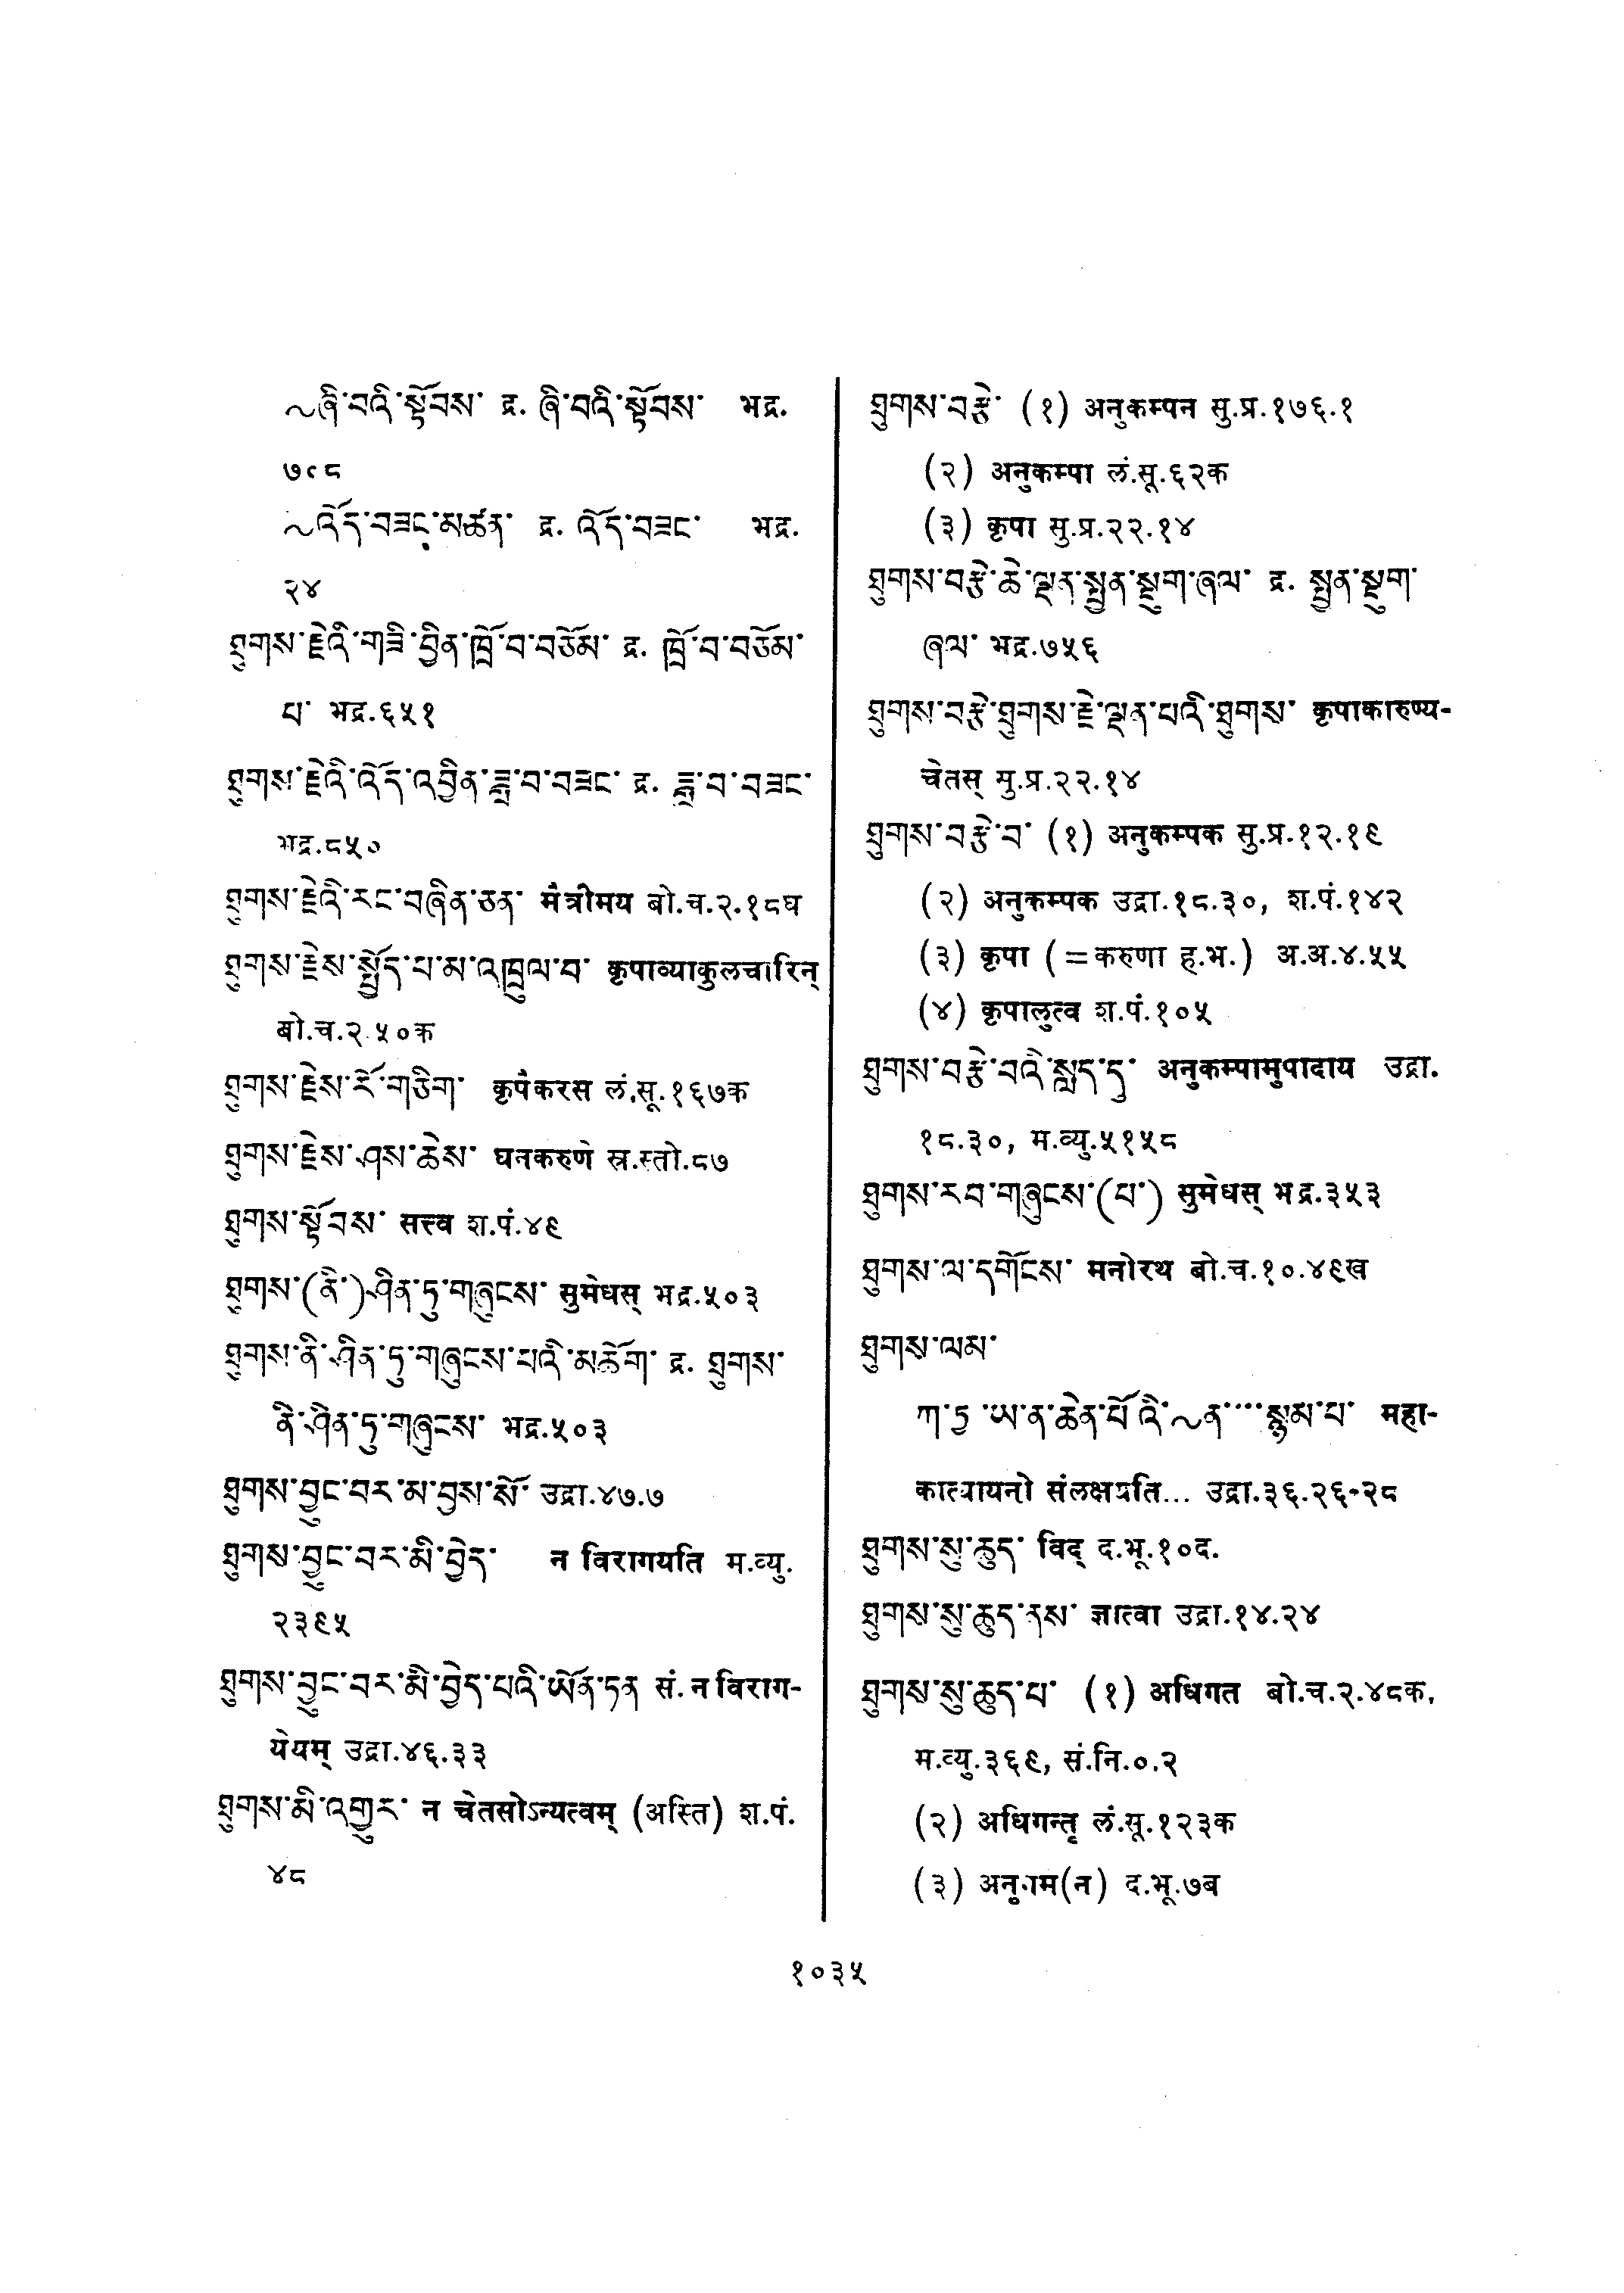 ~ཞི་བའི་སྟོབས་ द्र. ཞི་བའི་སྟོབས་ भद्र.
७९८
~འོད་བཟང་མཚན་ द्र. འོད་བཟང་ भद्र.
२४
ཐུགས་རྗེའི་གཟི་བྱིན་ཁྲོ་བ་བཅོམ་ द्र. ཁྲོ་བ་བཅོམ་
པ་ भद्र.६५१
ཐུགས་རྗེའི་འོད་འབྱིན་ཟླ་བ་བཟང་ द्र. ཟླ་བ་བཟང་
भद्र.८५०
ཐུགས་རྗེའི་རང་བཞིན་ཅན་ मैत्रीमय बो.च.२.१८घ
ཐུགས་རྗེས་སྤྱོད་པ་མ་འཁྲུལ་བ་ कृपाव्याकुलचारिन्
बो.च.२.५०क
ཐུགས་རྗེས་རོ་གཅིག་ कृपैकरस लं.सू.१६७क
ཐུགས་རྗེས་ཤས་ཆེས་ घनकरुणे स्र.स्तो.८७
ཐུགས་སྟོབས་ सत्त्व श.पं.४९
ཐུགས་(ནི་)ཤིན་ཏུ་གཞུངས་ सुमेधस् भद्र.५०३
ཐུགས་ནི་ཤིན་ཏུ་གཞུངས་པའི་མཆོག་ द्र. ཐུགས་
ནི་ཤིན་ཏུ་གཞུངས་ भद्र.५०३
ཐུགས་བྱུང་བར་མ་བྱས་སོ་ उद्रा.४७.७
ཐུགས་བྱུང་བར་མི་བྱེད་ न विरागयति म.व्यु.
२३९५
ཐུགས་བྱུང་བར་མི་བྱེད་པའི་ཡོན་ཏན सं. न विराग-
येयम् उद्रा.४६.३३
ཐུགས་མི་འགྱུར་ न चेतसोऽन्यत्वम् (अस्ति) श.पं.
४८
ཐུགས་བརྩེ་ (१) अनुकम्पन सु.प्र.१७६.१
(२) अनुकम्पा लं.सू.६२क
(३) कृपा सु.प्र.२२.१४
ཐུགས་བརྩེ་ཆེ་ལྡན་སྤྱན་སྡུག་ཞལ་ द्र. སྤྱན་སྡུག་
ཞལ་ भद्र.७५६
ཐུགས་བརྩེ་ཐུགས་རྗེ་ལྡན་པའི་ཐུགས་ कृपाकारुण्य-
चेतस् सु.प्र.२२.१४
ཐུགས་བརྩེ་བ་ (१) अनुकम्पक सु.प्र.१२.१९
(२) अनुकम्पक उद्रा.१८.३०, श.पं.१४२
(३) कृपा (=करुणा ह.भ.) अ.अ.४.५५
(४) कृपालुत्व श.पं.१०५
ཐུགས་བརྩེ་བའི་སླད་དུ་ अनुकम्पामुपादाय उद्रा.
१८.३०, म.व्यु.५१५८
ཐུགས་རབ་གཞུངས་(པ་) सुमेधस् भद्र.३५३
ཐུགས་ལ་དགོངས་ मनोरथ बो.च.१०.४९ख
ཐུགས་ལམ་
ཀ་ཏྱ་ཡ་ན་ཆེན་པོའི་~ན་...སྙམ་པ་ महा-
कात्यायनो संलक्षयति... उद्रा.३६.२६-२८
ཐུགས་སུ་ཆུད་ विद् द.भू.१०द.
ཐུགས་སུ་ཆུད་ནས་ ज्ञात्वा उद्रा.१४.२४
ཐུགས་སུ་ཆུད་པ་ (१) अधिगत बो.च.२.४८क,
म.व्यु.३६९, सं.नि.०.२
(२) अधिगन्तृ लं.सू.१२३क
(३) अनुगम(न) द.भू.७ब
१०३५